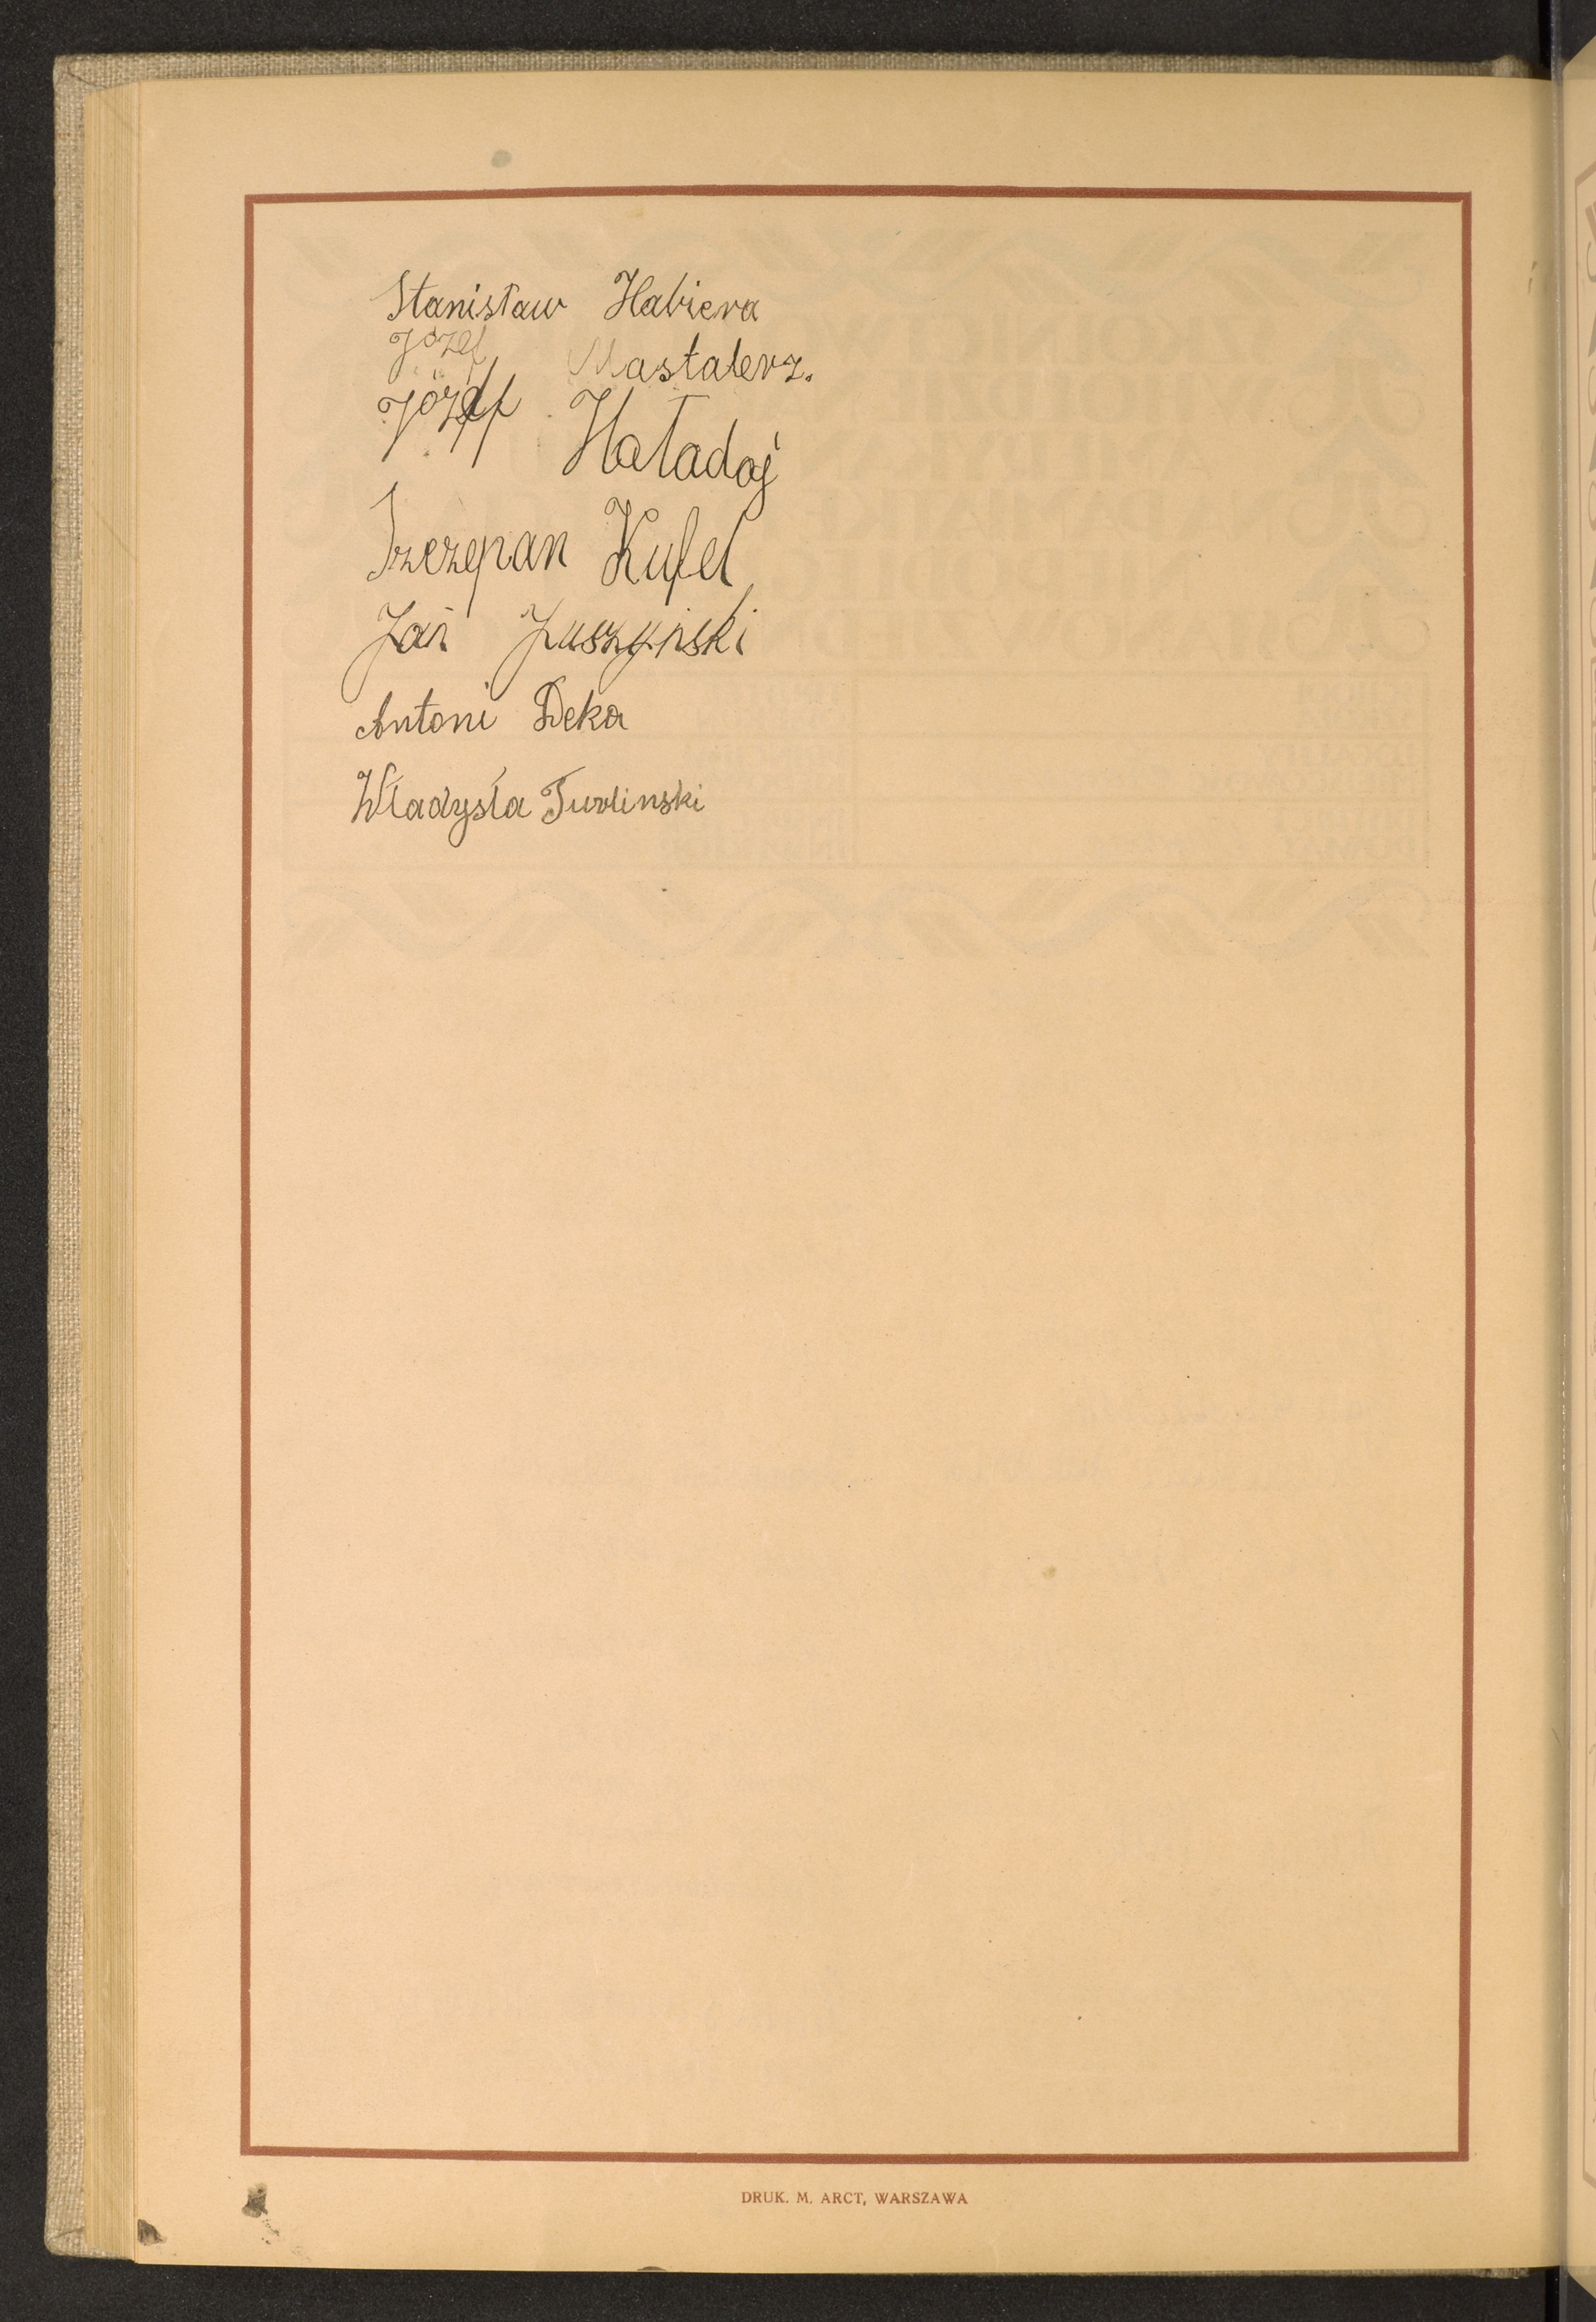 Stanisław Habiera
Józef Mastalerz.
Józef Haładaj
Szczepan Kufel
Jan Juszyński
Antoni Deka
Władysła Turlinski
DRUK. M. ARCT, WARSZAWA